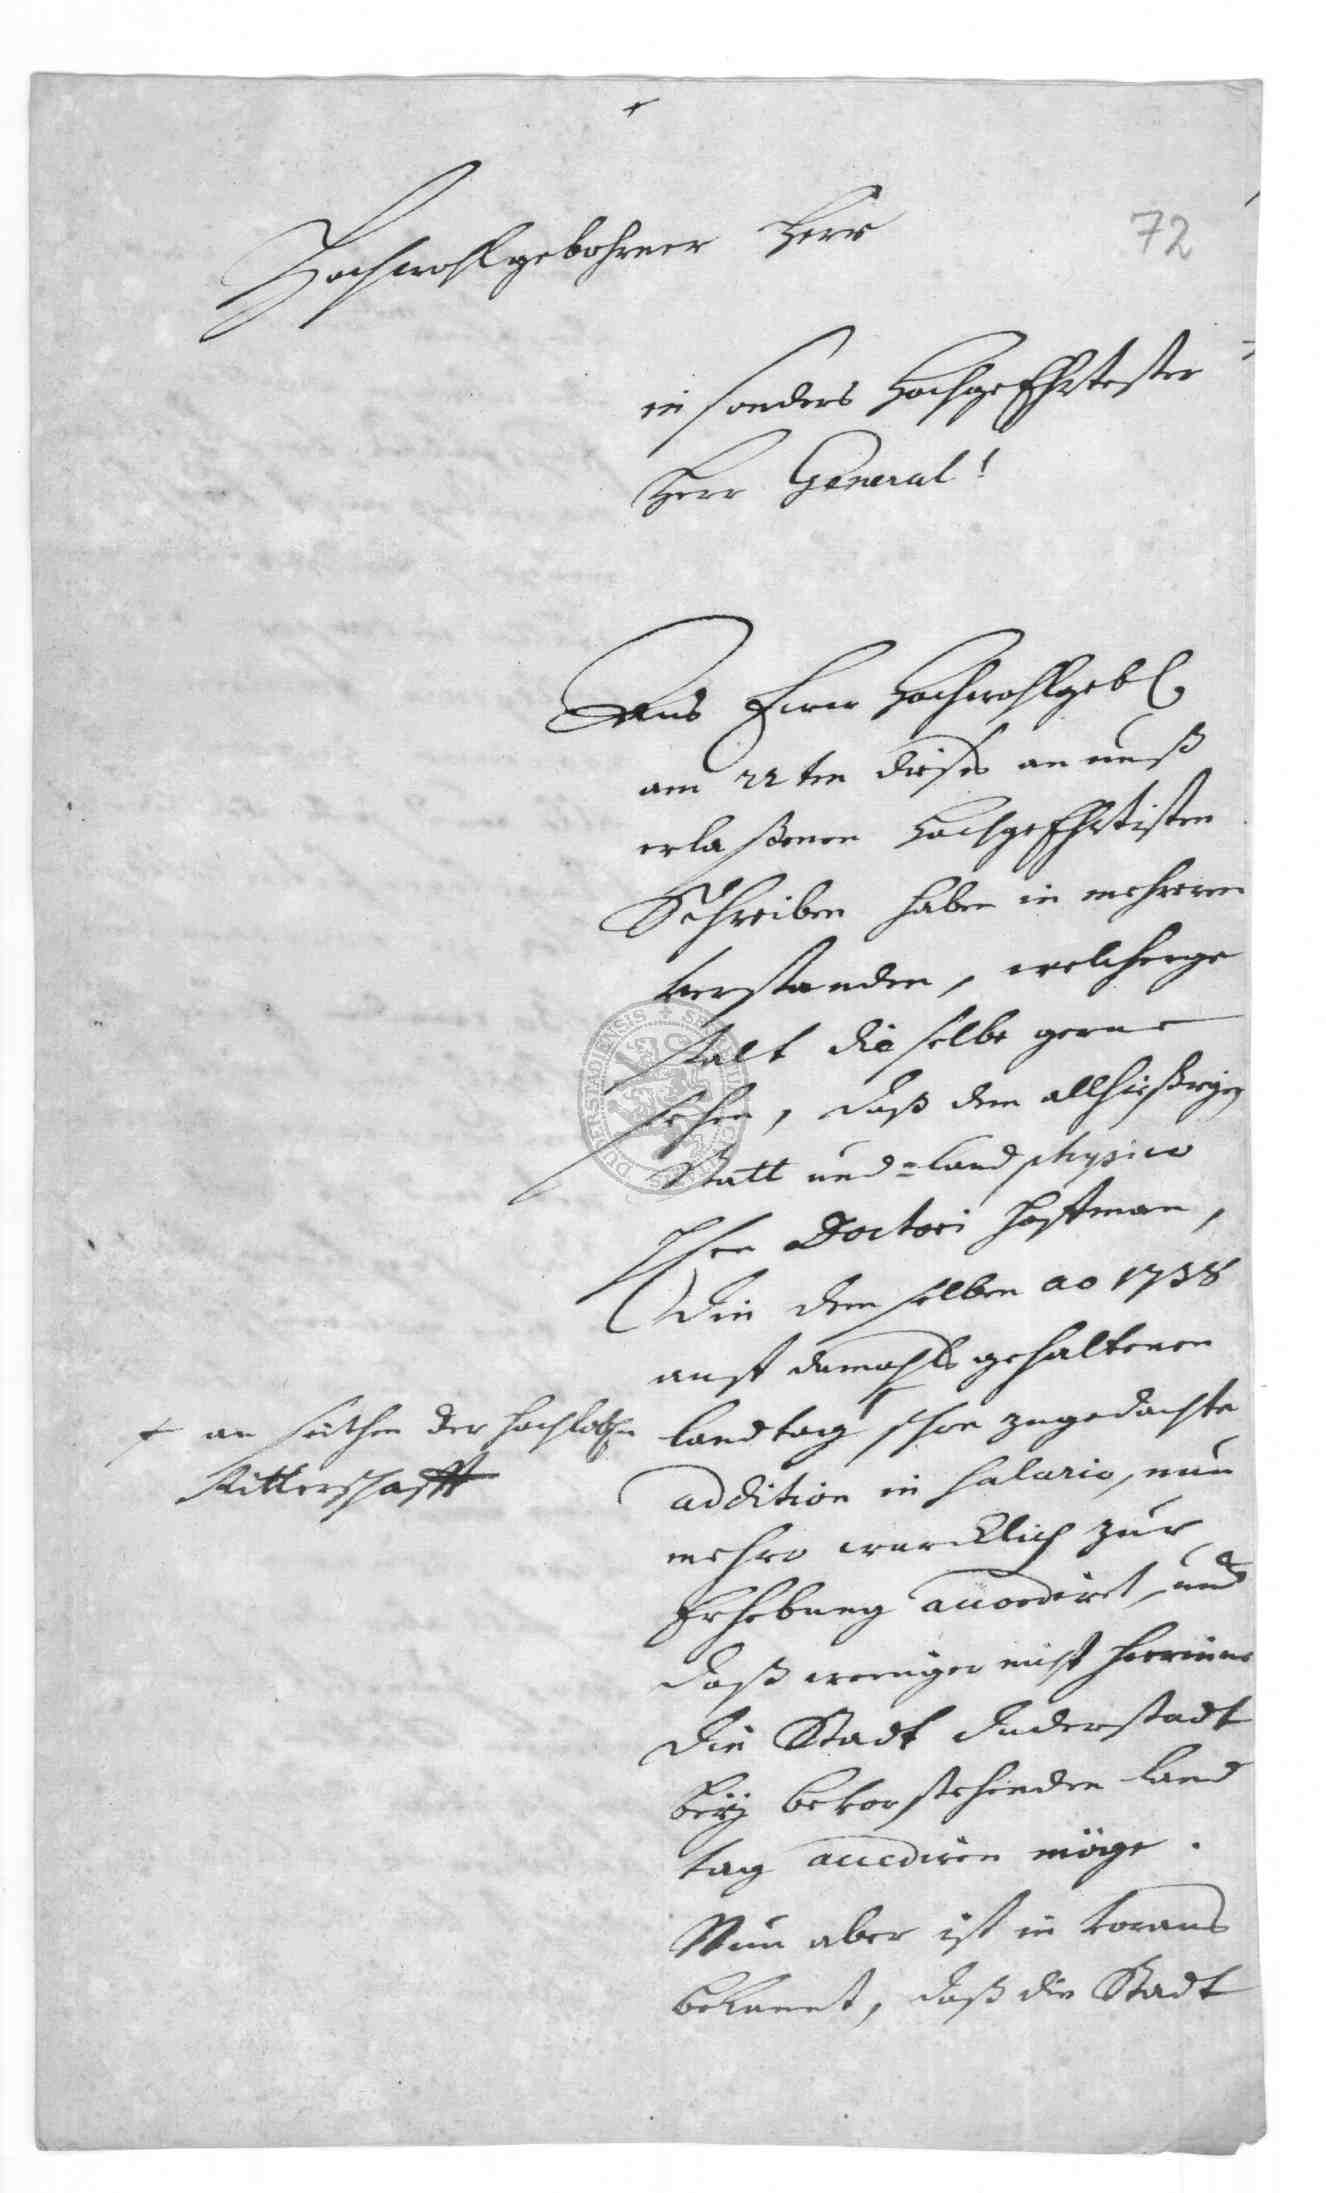 72
Hochwohlgebohrner Herr
in sonders HochgeEhrtester
Herr General!
Aus Ewer Hochwohlgebl
am 22ten dieses an unß
erlaßenen HochgeEhrtisten
Schreiben haben in mehreren
verstanden, welcherge
stalt dieselbe gerne
sehen, daß dem allhießigen
Statt und=land physico
Hen Doctori Hoffman,
die dem selben ao 1738
auff damahls gehaltenen
landtag schon zugedachte
addition in salario, nun
mehro wurcklich zur
Erhebung accordiret, und
daß weeniger nicht hierinne
die Stadt Duderstadt
beÿ bevorstehenden land
tag accediren möge.
Nun aber ist in voraus
bekannt, daß die Stadt
+ an seithen der hochlobn
Ritterschafft